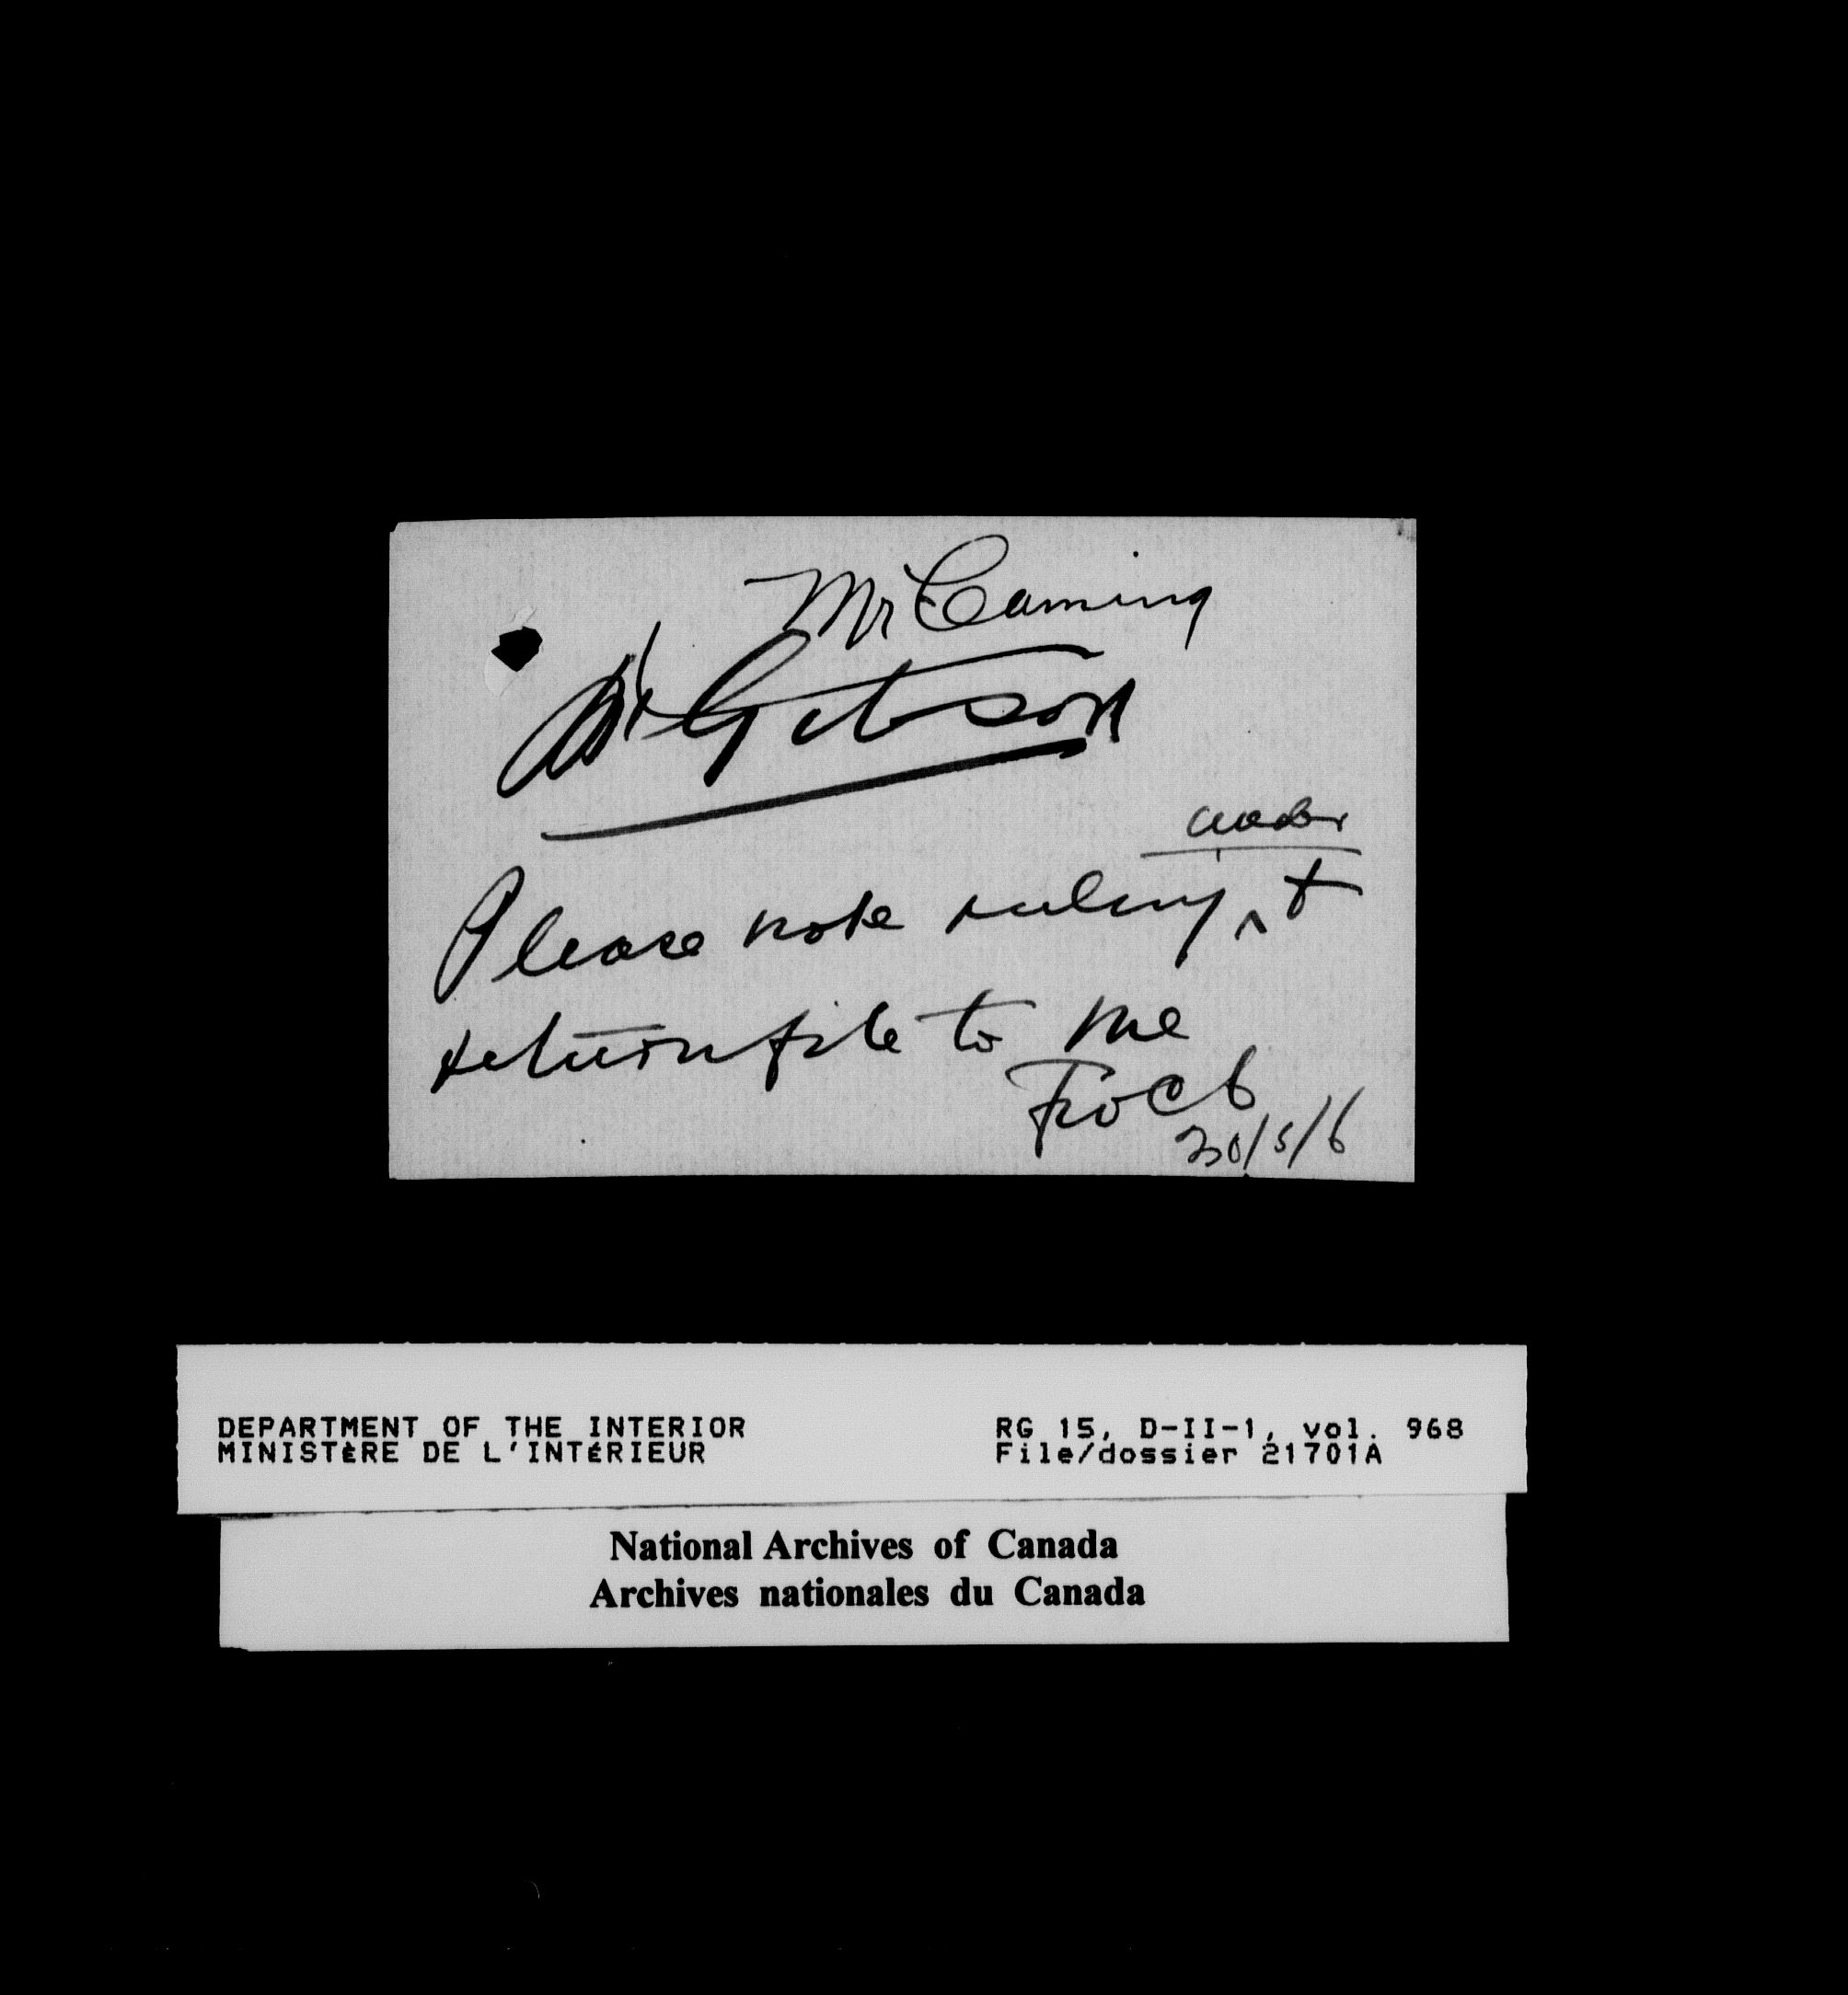 Mr Caming
Mr Gibson
under
Please note ruling ^ &
return file to me
30/5/6
DEPARTMENT OF THE INTERIOR
MINISTÈRE DE L'INTÉRIEUR
RG 15, D-II-1, vol. 968
File/dossier 21701A
National Archives of Canada
Archives nationales du Canada